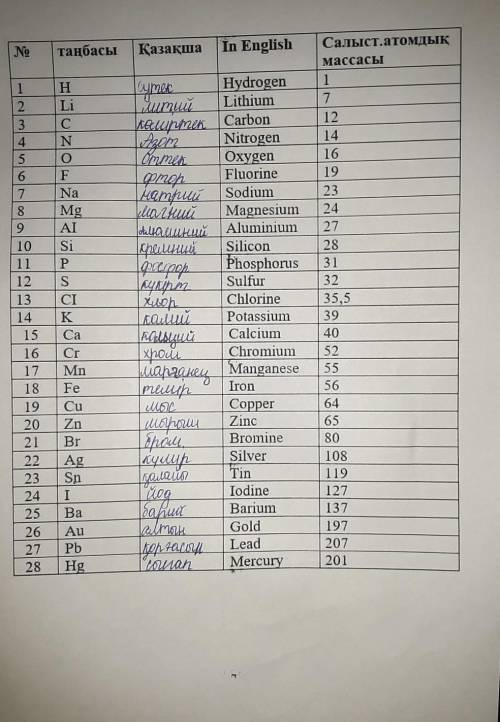 № таңбасы Қазақша In English Салыст.атомдық массасы
1 H сутек Hydrogen 1
2 Li литий Lithium 7
3 C көміртек Carbon 12
4 N Азот Nitrogen 14
5 O Оттек Oxygen 16
6 F фтор Fluorine 19
7 Na натрий Sodium 23
8 Mg магний Magnesium 24
9 AI алюминий Aluminium 27
10 Si кремний Silicon 28
11 P фосфор Phosphorus 31
12 S күкірт Sulfur 32
13 CI хлор Chlorine 35,5
14 K калий Potassium 39
15 Ca кальций Calcium 40
16 Cr хром Chromium 52
17 Mn марганец Manganese 55
18 Fe темір Iron 56
19 Cu мыс Copper 64
20 Zn мырыш Zinc 65
21 Br бром Bromine 80
22 Ag күміс Silver 108
23 Sn қалайы Tin 119
24 I йод Iodine 127
25 Ba барий Barium 137
26 Au алтын Gold 197
27 Pb қорғасын Lead 207
28 Hg сынап Mercury 201